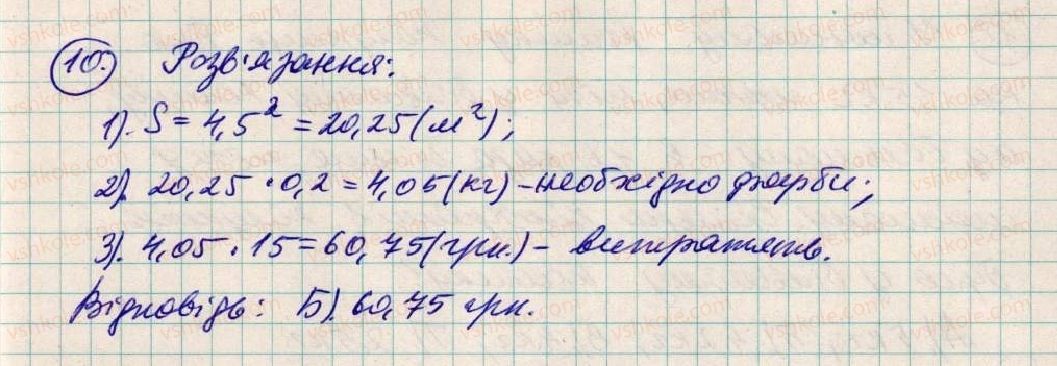 10. Розв'язання:
1). S = 4,5² = 20,25 (м²);
2). 20,25 · 0,2 = 4,05 (кг) – необхідно фарби;
3). 4,05 · 15 = 60,75 (грн.) – витратять.
Відповідь: Б). 60,75 грн.